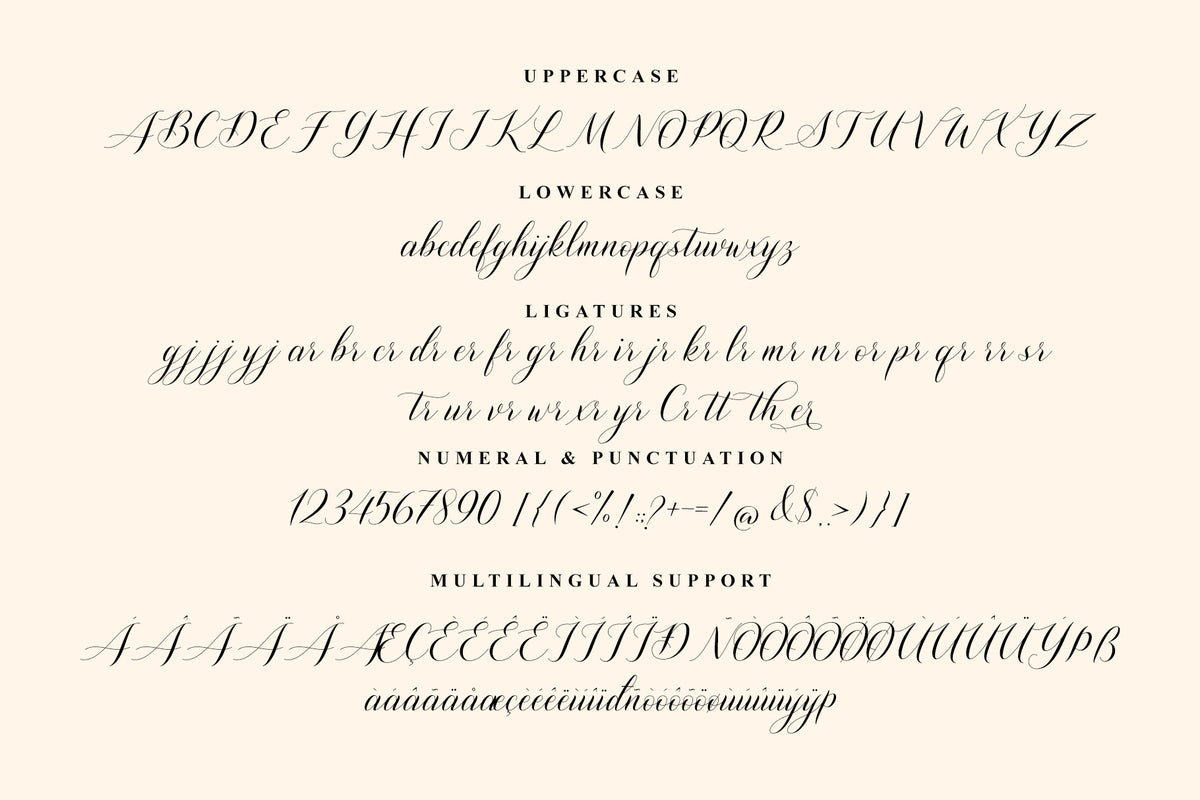 UPPERCASE
ABCDEFGHIJKLMNOPQRSTUVWXYZ
LOWERCASE
abcdefghijklmnopqrstuvwxyz
LIGATURES
gj jj yj ar br cr dr er fr gr hr ir jr kr lr mr nr or pr qr rr sr
tr ur vr wr xr yr Cr tt th er
NUMERAL & PUNCTUATION
1234567890 [{(<%!:;?+-=/@&$.,>)}]
MULTILINGUAL SUPPORT
ÁÂÃÄÅÆÇÈÉÊËÌÍÎÏÐÑÒÓÔÕÖØÙÚÛÜÝÞß
àáâãäåæçèéêëìíîïðñòóôõöøùúûüýÿþ